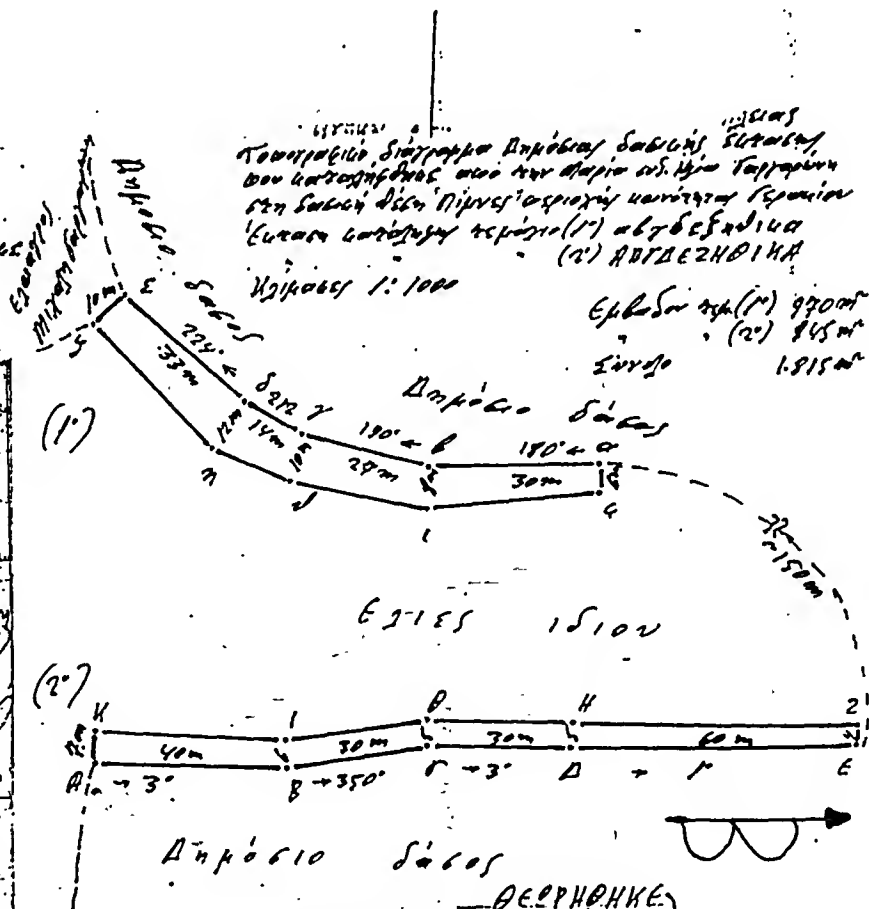 Τοπογραφικό διάγραμμα Δημόσιας δασικής έκτασης
που καταλήφθηκε από την Μαρία συζ. Ηλία
στη δασική θέση "Πίμνες" περιοχής κοινότητας Γερακίου
Έκταση κατάληψης τεμάχιο (1ο) αβγδεζηθικα
(2ο) ΑΒΓΔΕΖΗΘΙΚΑ
Κλίμακας 1:1000
Εμβαδόν τεμ. (1ο) 970 m²
" (2ο) 845 m²
Σύνολο 1.815 m²
Δημόσιο δάσος
Ελαιαγρος
10m
ε
ζ
224° ←
33m
(1ο)
δ
12m
γ
14m
10m
190° ←
27m
β
180° ←
30m
α
Δημόσιο δάσος
η
θ
ι
κ
~150m
Ελιές ιδίου
(2ο)
Κ
Ι
Θ
Η
Ζ
7m
40m
30m
30m
60m
Α → 3°
Β → 350°
Γ → 3°
Δ → 1°
Ε
Δημόσιο δάσος
ΘΕΩΡΗΘΗΚΕ